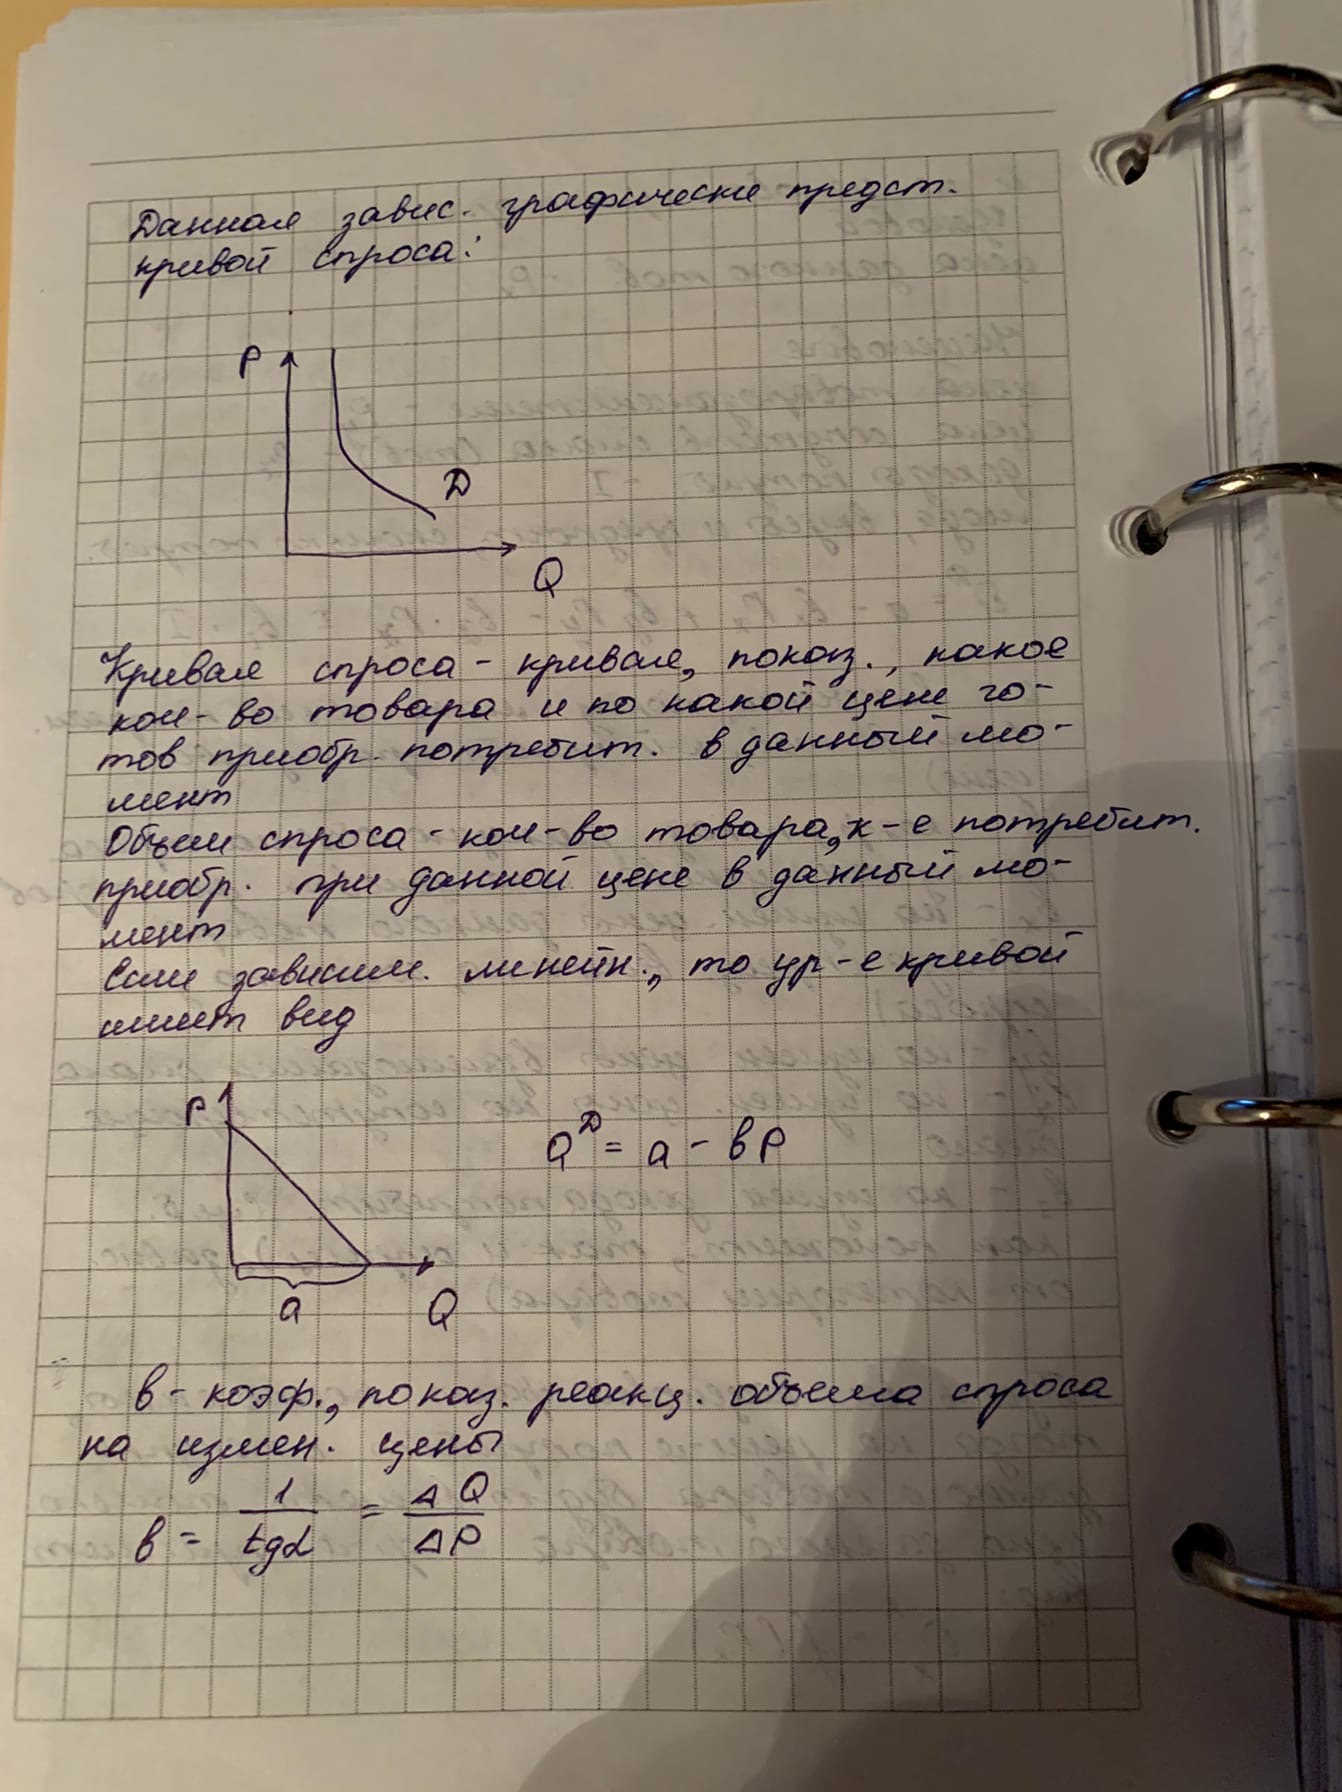 Данная завис. графически предст.
кривой спроса:
P
D
Q
Кривая спроса - кривая, показ., какое
кол-во товара и по какой цене го-
тов приобр. потребит. в данный мо-
мент
Объем спроса - кол-во товара, к-е потребит.
приобр. при данной цене в данный мо-
мент
Если зависим. линейн., то ур-е кривой
имеет вид
P
Q^D = a - bP
a
Q
b - коэф., показ. реакц. объема спроса
на измен. цены
b = 1/tgα = ΔQ/ΔP